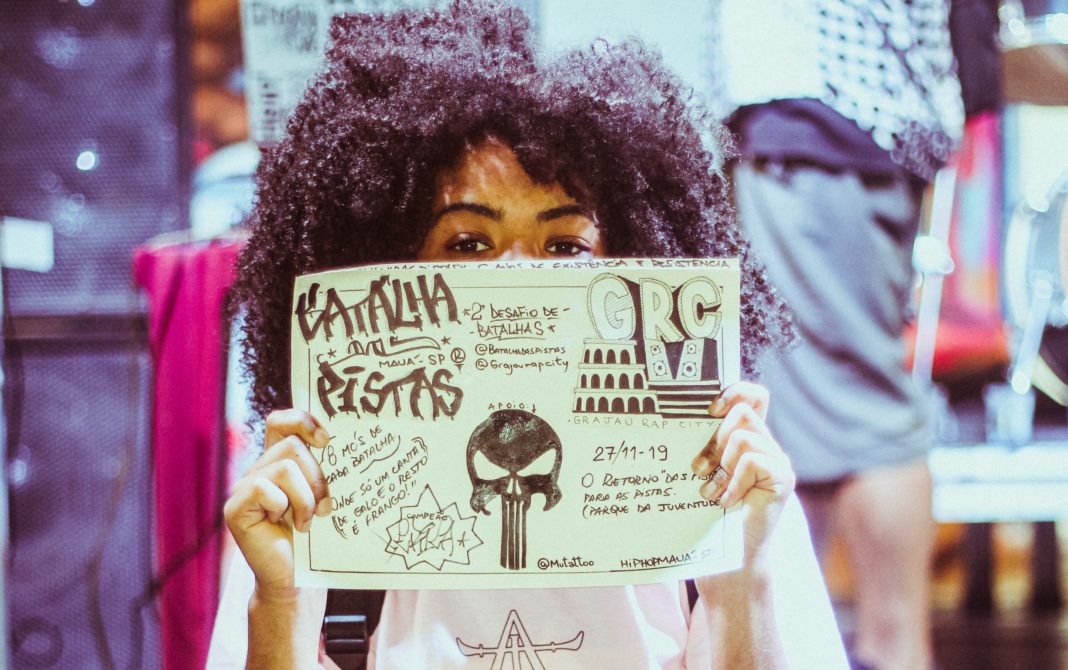 6 ANOS DE EXISTÊNCIA E RESISTENCIA
BATALHA
DAS
MAUÁ-SP
PISTAS
*2º DESAFIO DE-
-BATALHAS*
@BATALHADASPISTAS
@Grajaurapcity
GRC
-GRAJAU RAP CITY-
8 MC'S DE
CADA BATALHA
ONDE SÓ UM CANTA
DE GALO E O RESTO
É FRANGO!"
CAMPEÃO
APOIO:
27/11-19
O RETORNO "DAS
PARA AS PISTAS.
(PARQUE DA JUVENTUDE
@Mutattoo
HIPHOPMAUÁ-SP